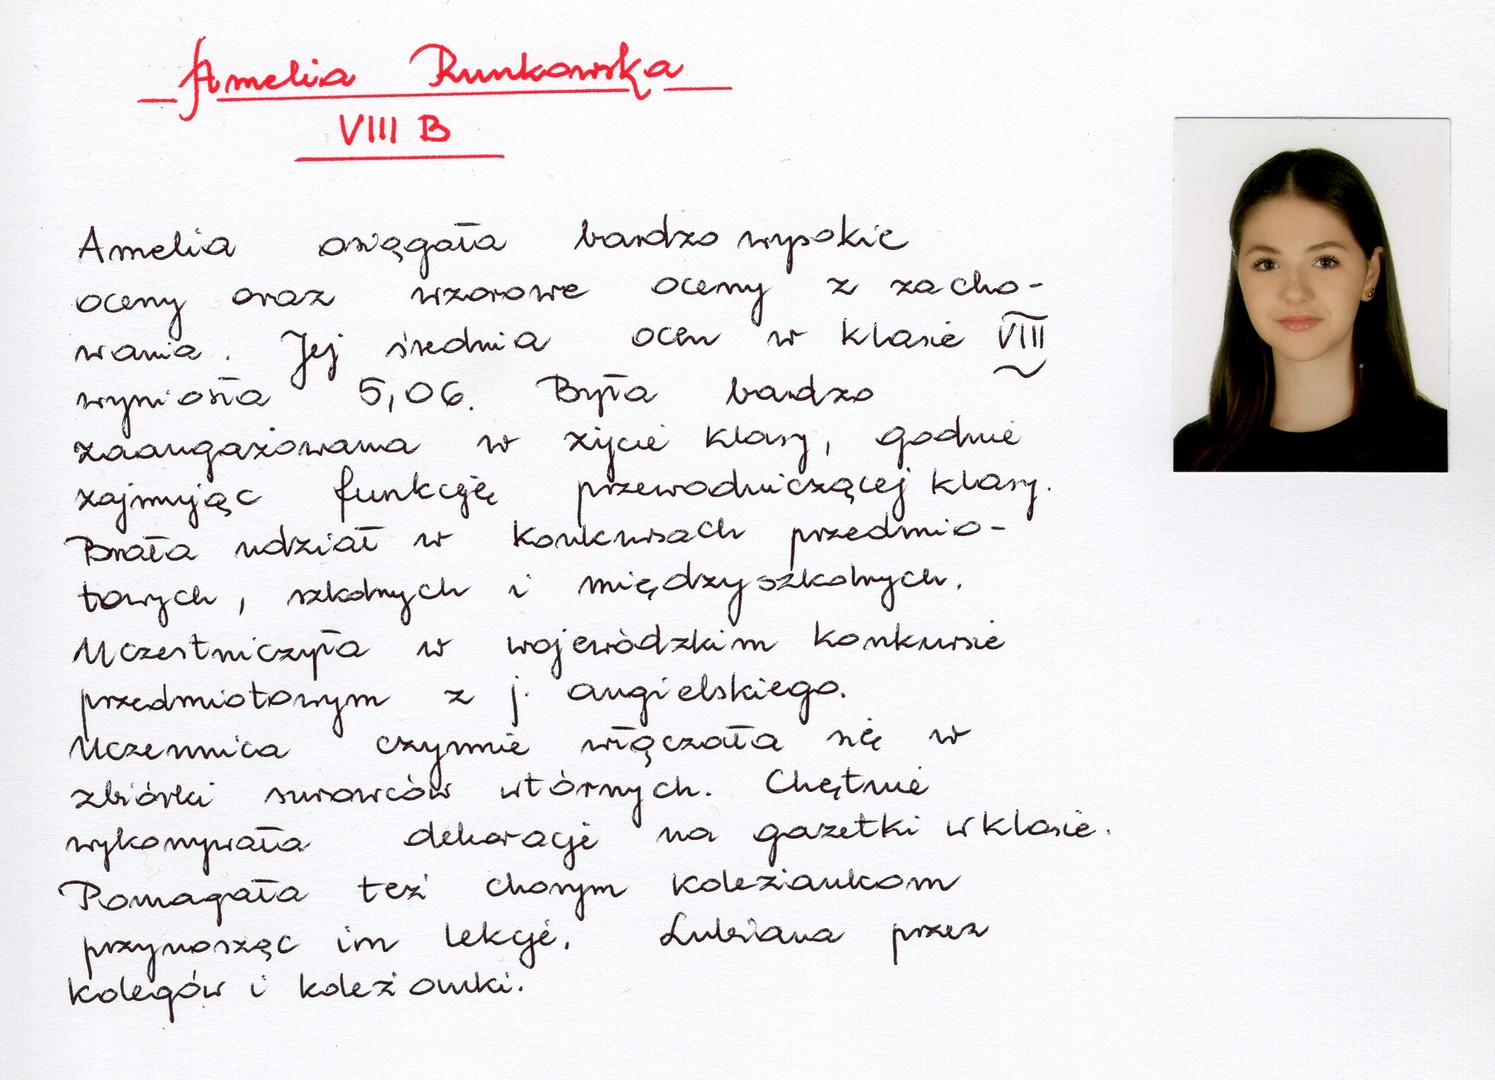 Amelia Runkowska
VIII B
Amelia osiągała bardzo wysokie
oceny oraz wzorowe oceny z zacho-
wania. Jej średnia ocen w klasie VIII
wyniosła 5,06. Była bardzo
zaangażowana w życie klasy, godnie
zajmując funkcję przewodniczącej klasy.
Brała udział w konkursach przedmio-
towych, szkolnych i międzyszkolnych.
Uczestniczyła w wojewódzkim konkursie
przedmiotowym z j. angielskiego.
Uczennica czynnie włączała się w
zbiórki surowców wtórnych. Chętnie
wykonywała dekoracje na gazetki w klasie.
Pomagała też chorym koleżankom
przynosząc im lekcje. Lubiana przez
kolegów i koleżanki.